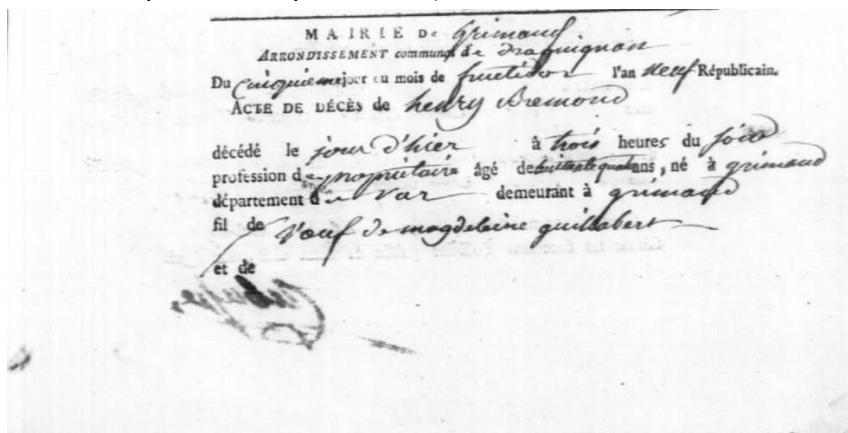 MAIRIE De Grimaud
ARRONDISSEMENT communal de draguignan
Du cinquieme jour du mois de fructidor l'an neuf Républicain.
ACTE DE DÉCÈS de henry Bremond
décédé le jour d'hier à trois heures du soir
profession de propriétaire âgé de huitante quatre ans, né à grimaud
département du var demeurant à grimaud
fil de veuf de magdeleine guillabert
et de